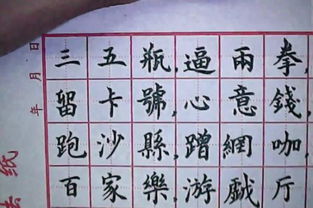 三五瓶,逼兩拳,
留卡號,心意錢,
跑沙縣,蹭網咖,
百家樂,游戲厅
年月日